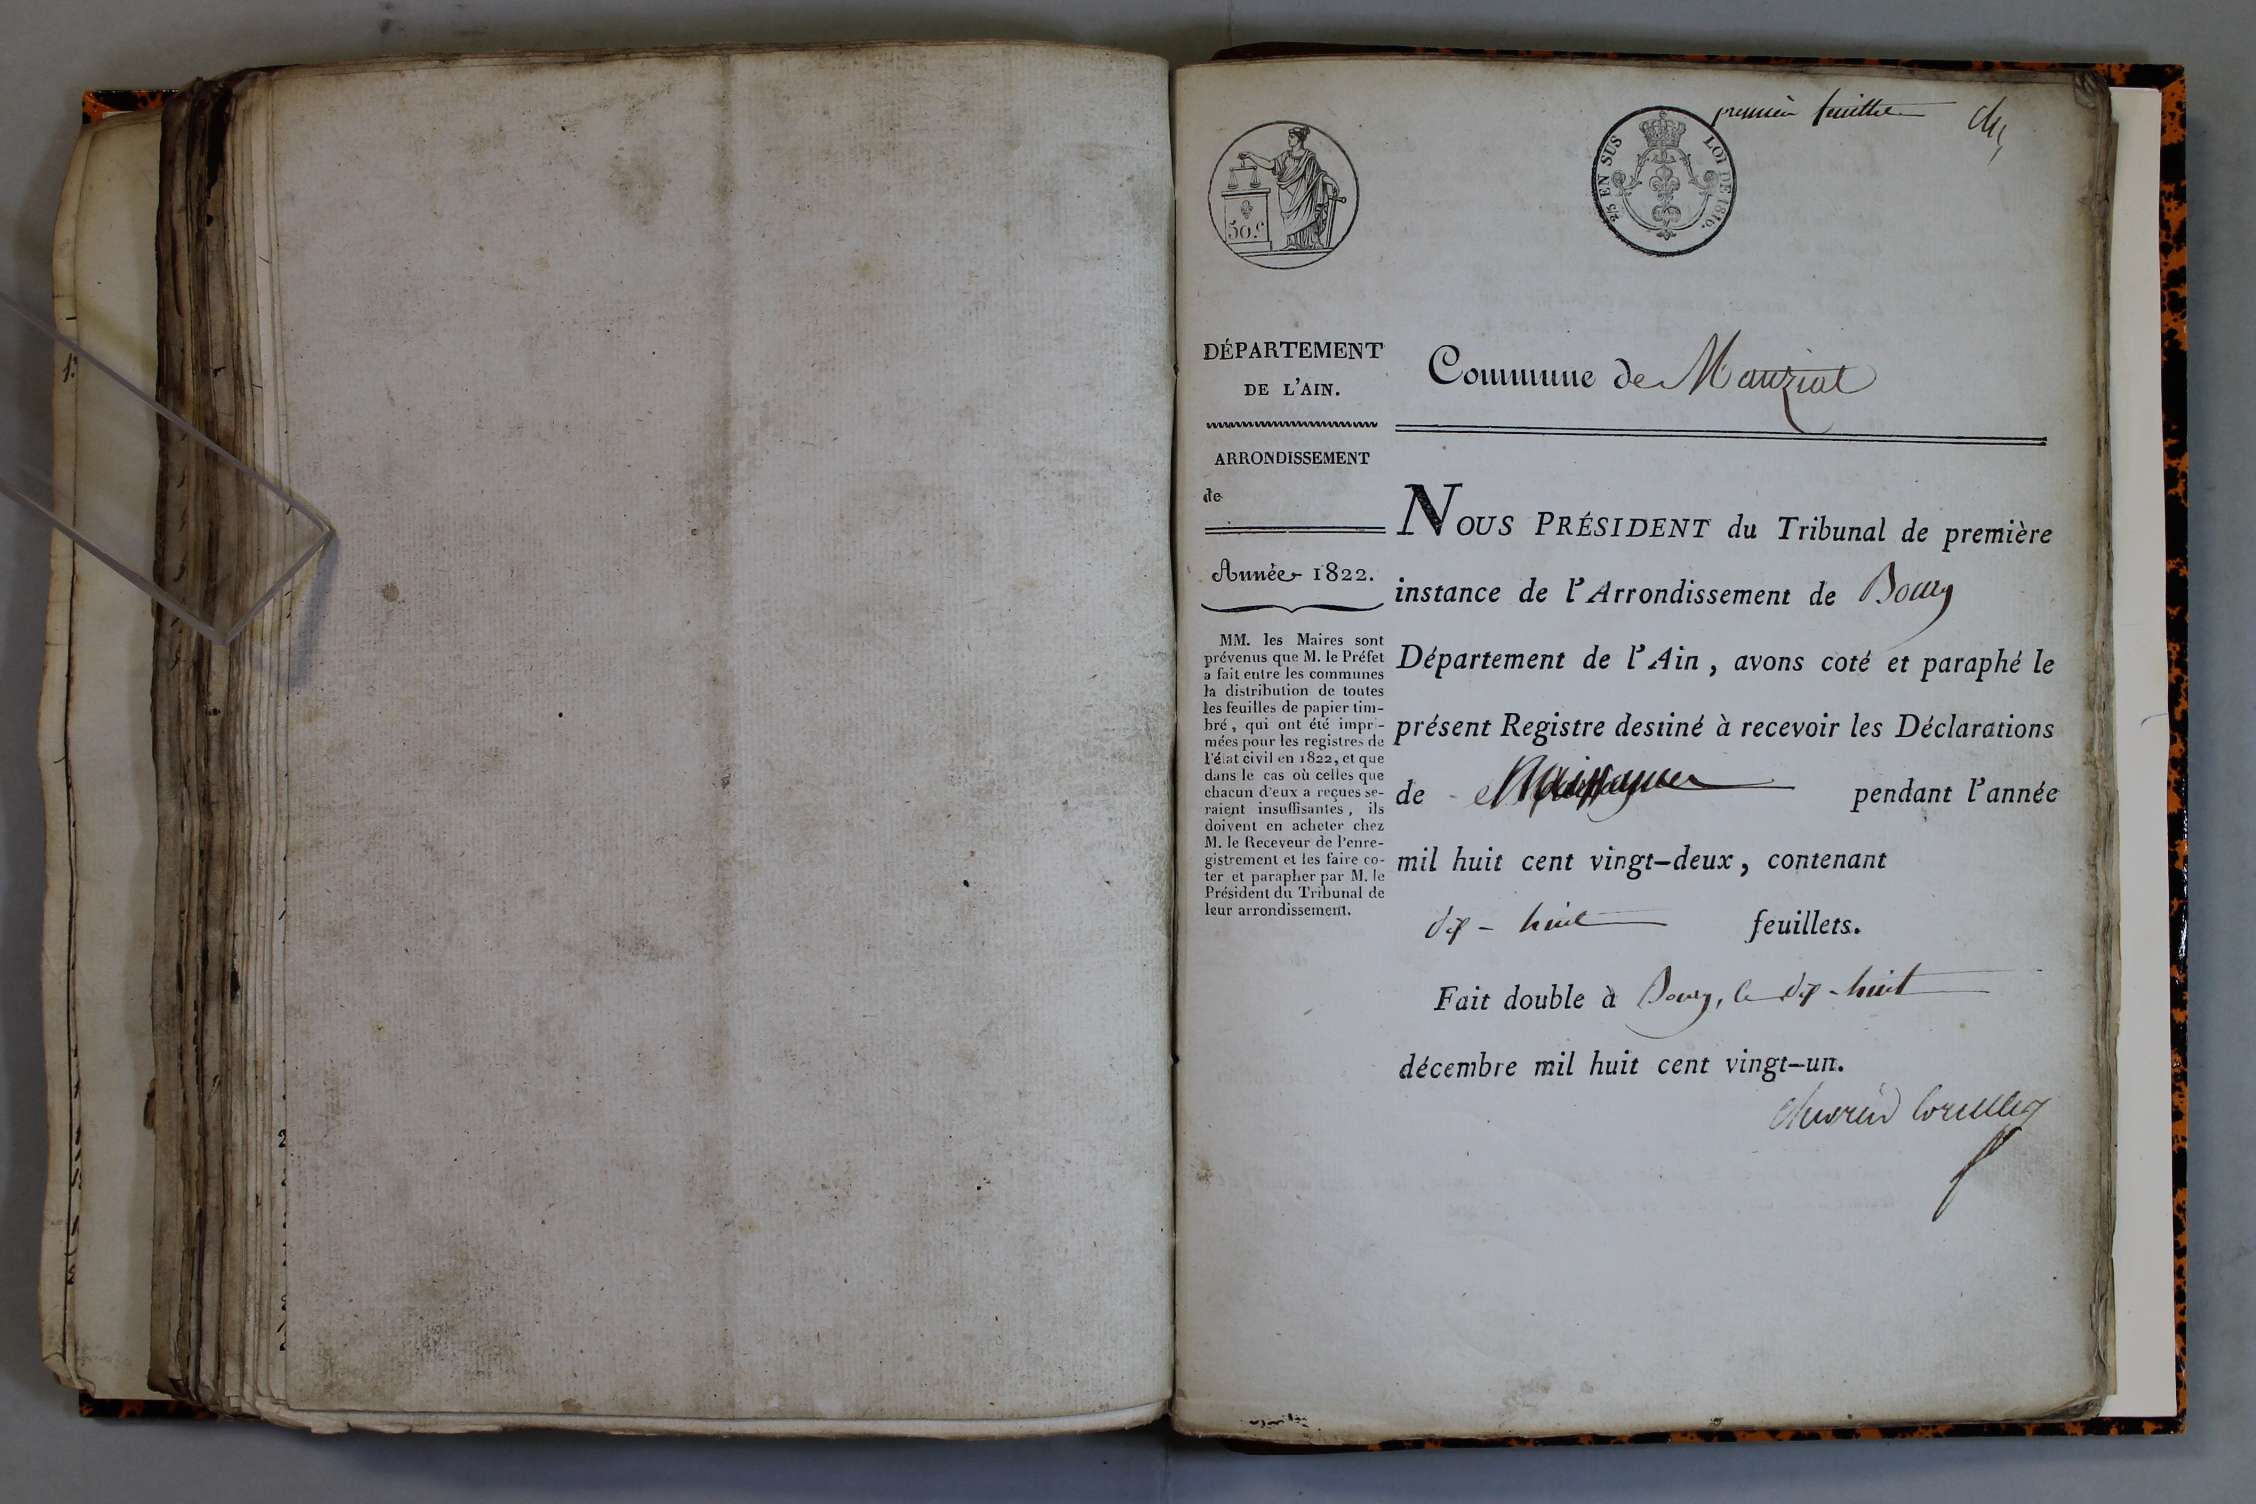 premier feuillet
2/5 EN SUS LOI DE 1816.
50.c
DÉPARTEMENT
DE L'AIN.
ARRONDISSEMENT
de
Année 1822.
MM. les Maires sont
prévenus que M. le Préfet
a fait entre les communes
la distribution de toutes
les feuilles de papier tim-
bré, qui ont été impri-
mées pour les registres de
l'état civil en 1822, et que
dans le cas où celles que
chacun d'eux a reçues se-
raient insuffisantes, ils
doivent en acheter chez
M. le Receveur de l'enre-
gistrement et les faire co-
ter et parapher par M. le
Président du Tribunal de
leur arrondissement.
Commune de Manziat
NOUS PRÉSIDENT du Tribunal de première
instance de l'Arrondissement de Bourg
Département de l'Ain, avons coté et paraphé le
présent Registre destiné à recevoir les Déclarations
de pendant l'année
mil huit cent vingt-deux, contenant
dix-huit feuillets.
Fait double à Bourg, le dix-huit
décembre mil huit cent vingt-un.